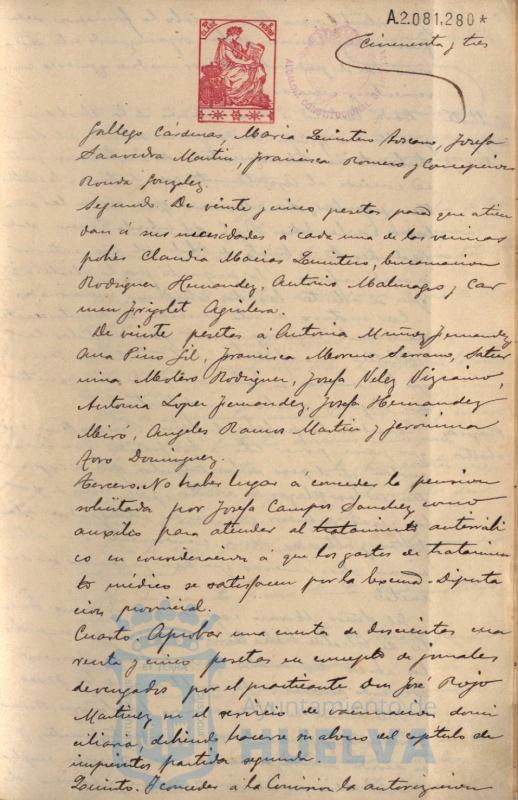 A.2.081,280*
Cincuenta y tres
Gallego Cárdenas, Maria Quintero Toscano, Josefa
Saavedra Martin, Francisca Romero y Concepcion
Ronda Gonzalez.
Segundo. De veinte y cinco pesetas para que atien
dan á sus necesidades á cada una de las vecinas
pobres Claudia Macias Quintero, Encarnacion
Rodriguez Hernandez, Antonia Malmagro y Car
men Frigolet Aguilera.
De veinte pesetas á Antonia Muñoz Fernandez,
Ana Pino Gil, Francisca Moreno Serrano, Satur
nina, Rodriguez, Josefa Velez Vizcaino,
Antonia Lopez Fernandez, Josefa Hernandez
Miró, Angeles Ramos Martin y Jeronima
Toro Dominguez.
Tercero. No haber lugar á conceder la pension
solicitada por Josefa Campos Sanchez como
auxilio para atender al tratamiento antirrábi
co en consideracion á que los gastos de tratamien
to médico se satisfacen por la Excma. Diputa
cion provincial.
Cuarto. Aprobar una cuenta de doscientas cua
renta y cinco pesetas en concepto de jornales
devengados por el practicante Don José Rojo
Martinez en el servicio de vacunacion domi
ciliaria, debiendo hacerse su abono del capitulo de
imprevistos partida segunda.
Quinto. Conceder á la Comision la autorizacion
Ayuntamiento de
HUELVA